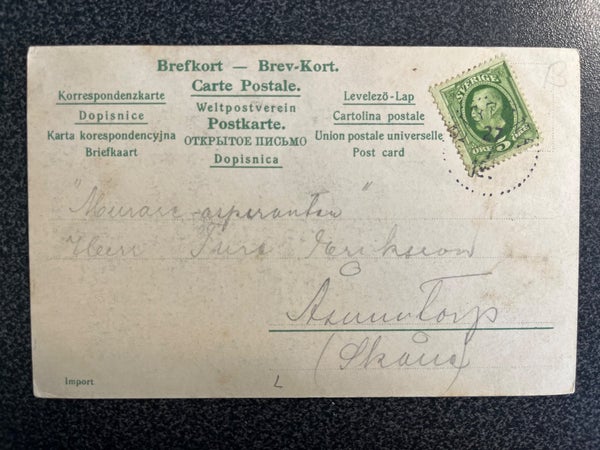 Brefkort — Brev-Kort.
Carte Postale.
Korrespondenzkarte
Dopisnice
Karta korespondencyjna
Briefkaart
Weltpostverein
Postkarte.
ОТКРЫТОЕ ПИСЬМО
Dopisnica
Levelező-Lap
Cartolina postale
Union postale universelle
Post card
SVERIGE
5 ÖRE
27
B
Herr Ture Erikson
Asumtorp
(Skåne)
Import
L